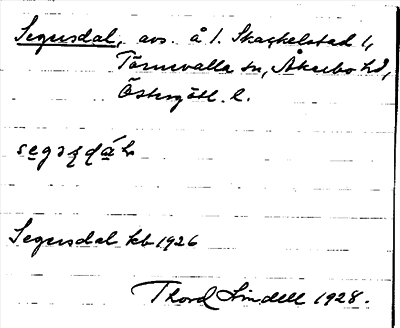 Segersdal, avs. å l. Skackelstad 1,
Törnevalla sn, Åkerbo hd,
Östergötl. l.
Segersdal kb 1926
Thord Lindell 1928.